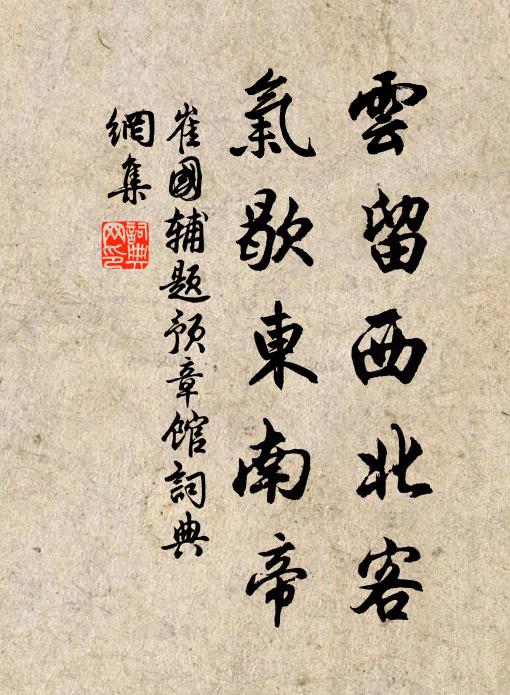 雲留西北客
氣歇東南帝
崔國輔題預章館詞典
網集
詞典
网印